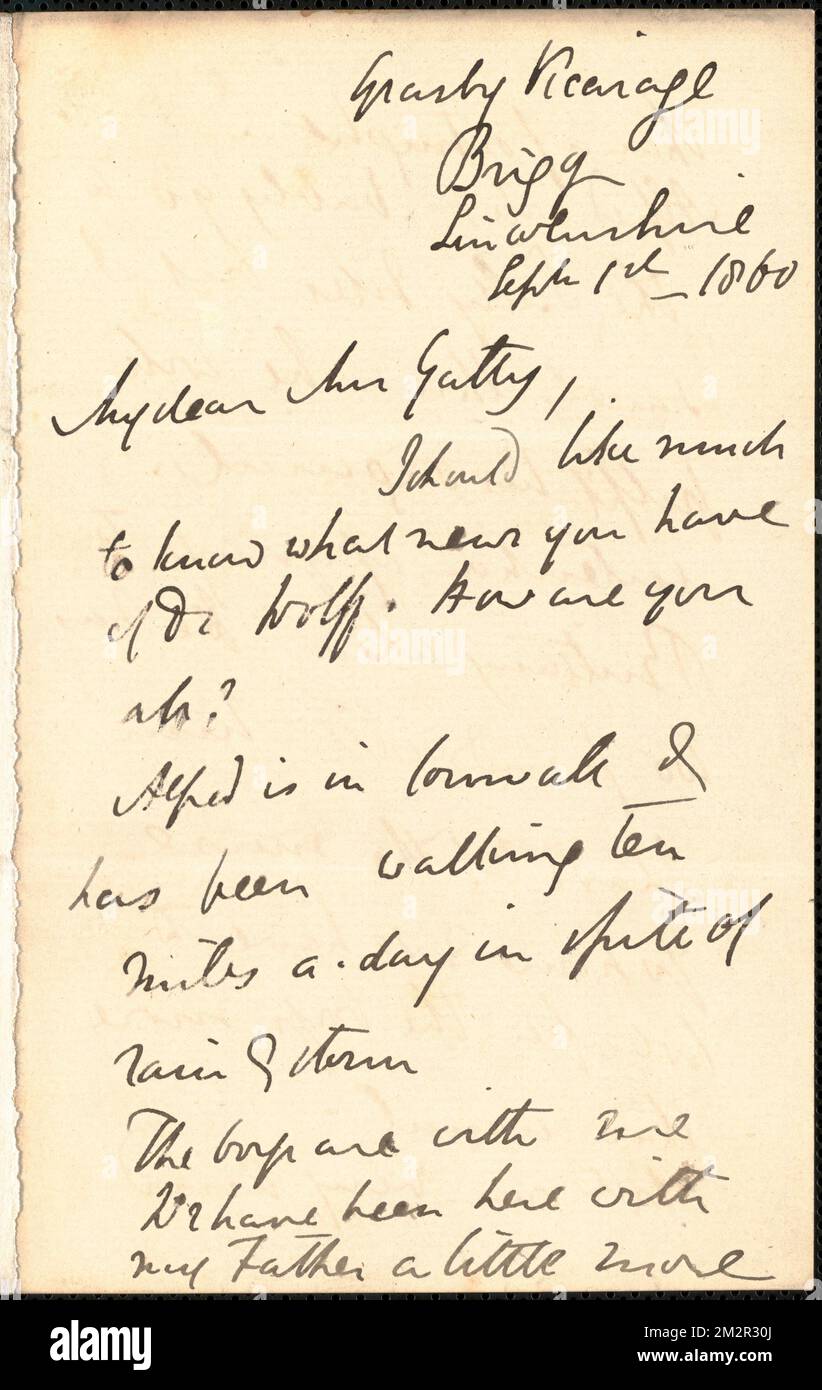 Grasby Vicarage
Brigg
Lincolnshire
Sept 1st 1860
My dear Mrs Gatty,
I should like much
to know what news you have
of Dr Wolff. How are you
all?
Alfred is in Cornwall &
has been walking ten
miles a-day in spite of
rain & storm
The boys are with me
We have been here with
my Father a little more
alamy
Image ID: 2M2R30J
www.alamy.com